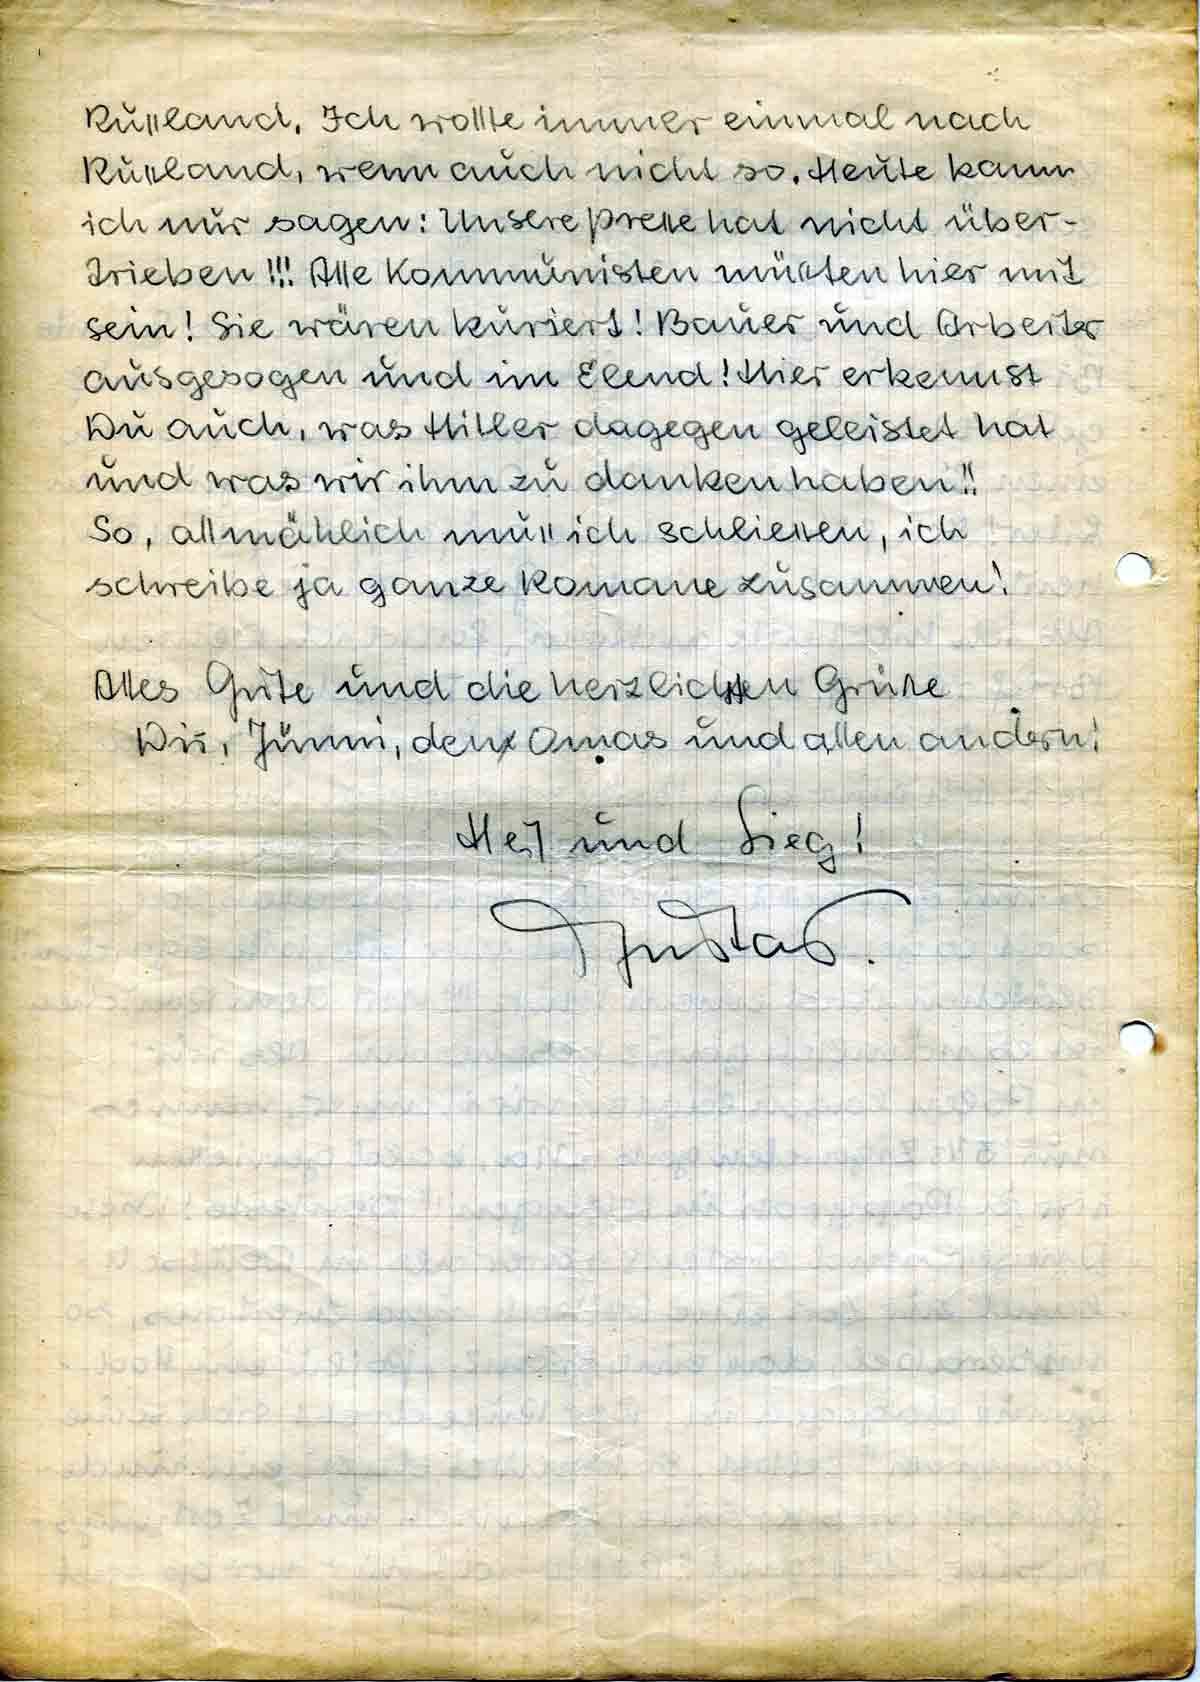 Rußland. Ich wollte immer einmal nach
Rußland, wenn auch nicht so. Heute kann
ich nur sagen: Unsere Presse hat nicht über-
trieben!!! Alle Kommunisten müßten hier mit
sein! Sie wären kuriert! Bauer und Arbeiter
ausgesogen und im Elend! Hier erkennst
Du auch, was Hitler dagegen geleistet hat
und was wir ihm zu danken haben!!
So, allmählich muß ich schließen, ich
schreibe ja ganze Romane zusammen!
Alles Gute und die herzlichsten Grüße
Dir, Jünni, den Omas und allen andern!
Heil und Sieg!
Gustav.